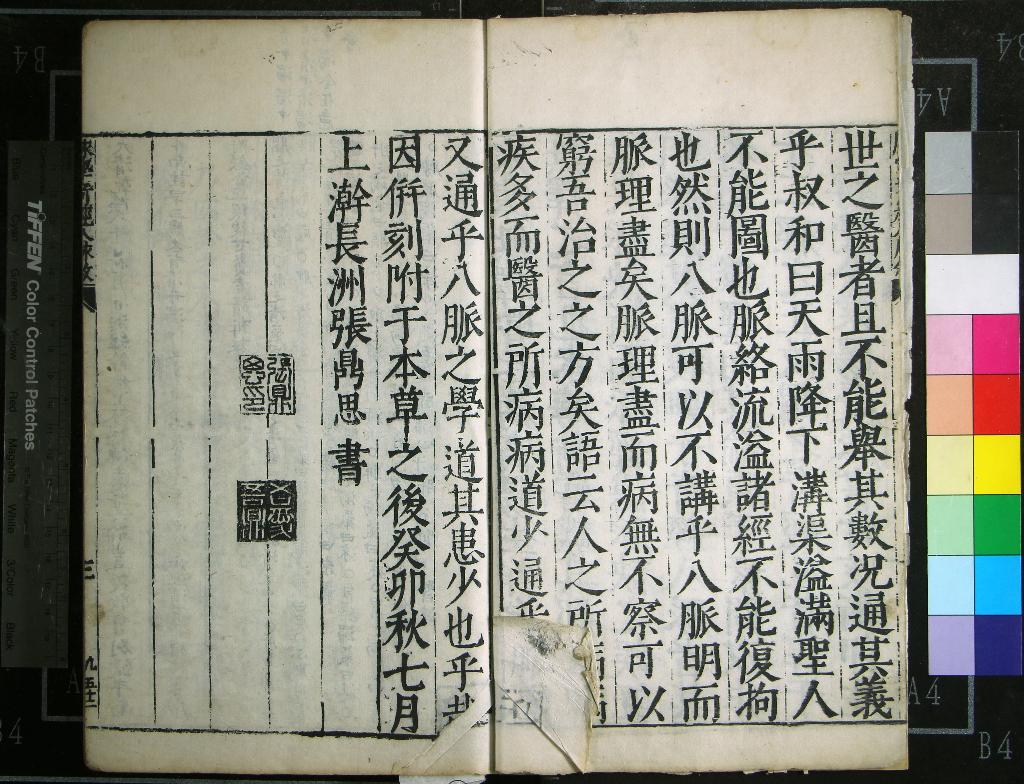 世之醫者且不能舉其數况通其義
乎叔和曰天雨降下溝渠溢滿聖人
不能圖也脈絡流溢諸經不能復拘
也然則八脈可以不講乎八脈明而
脈理盡矣脈理盡而病無不察可以
窮吾治之之方矣語云人之所
疾多而醫之所病病道少通乎
又通乎八脈之學道其患少也乎哉
因併刻附于本草之後癸卯秋七月
上澣長洲張鼎思書
張鼎思印
三
TIFFEN Color Control Patches
Blue
Cyan
Green
Yellow
Red
Magenta
White
3/Color
Black
A4
A4
B4
B4
B4